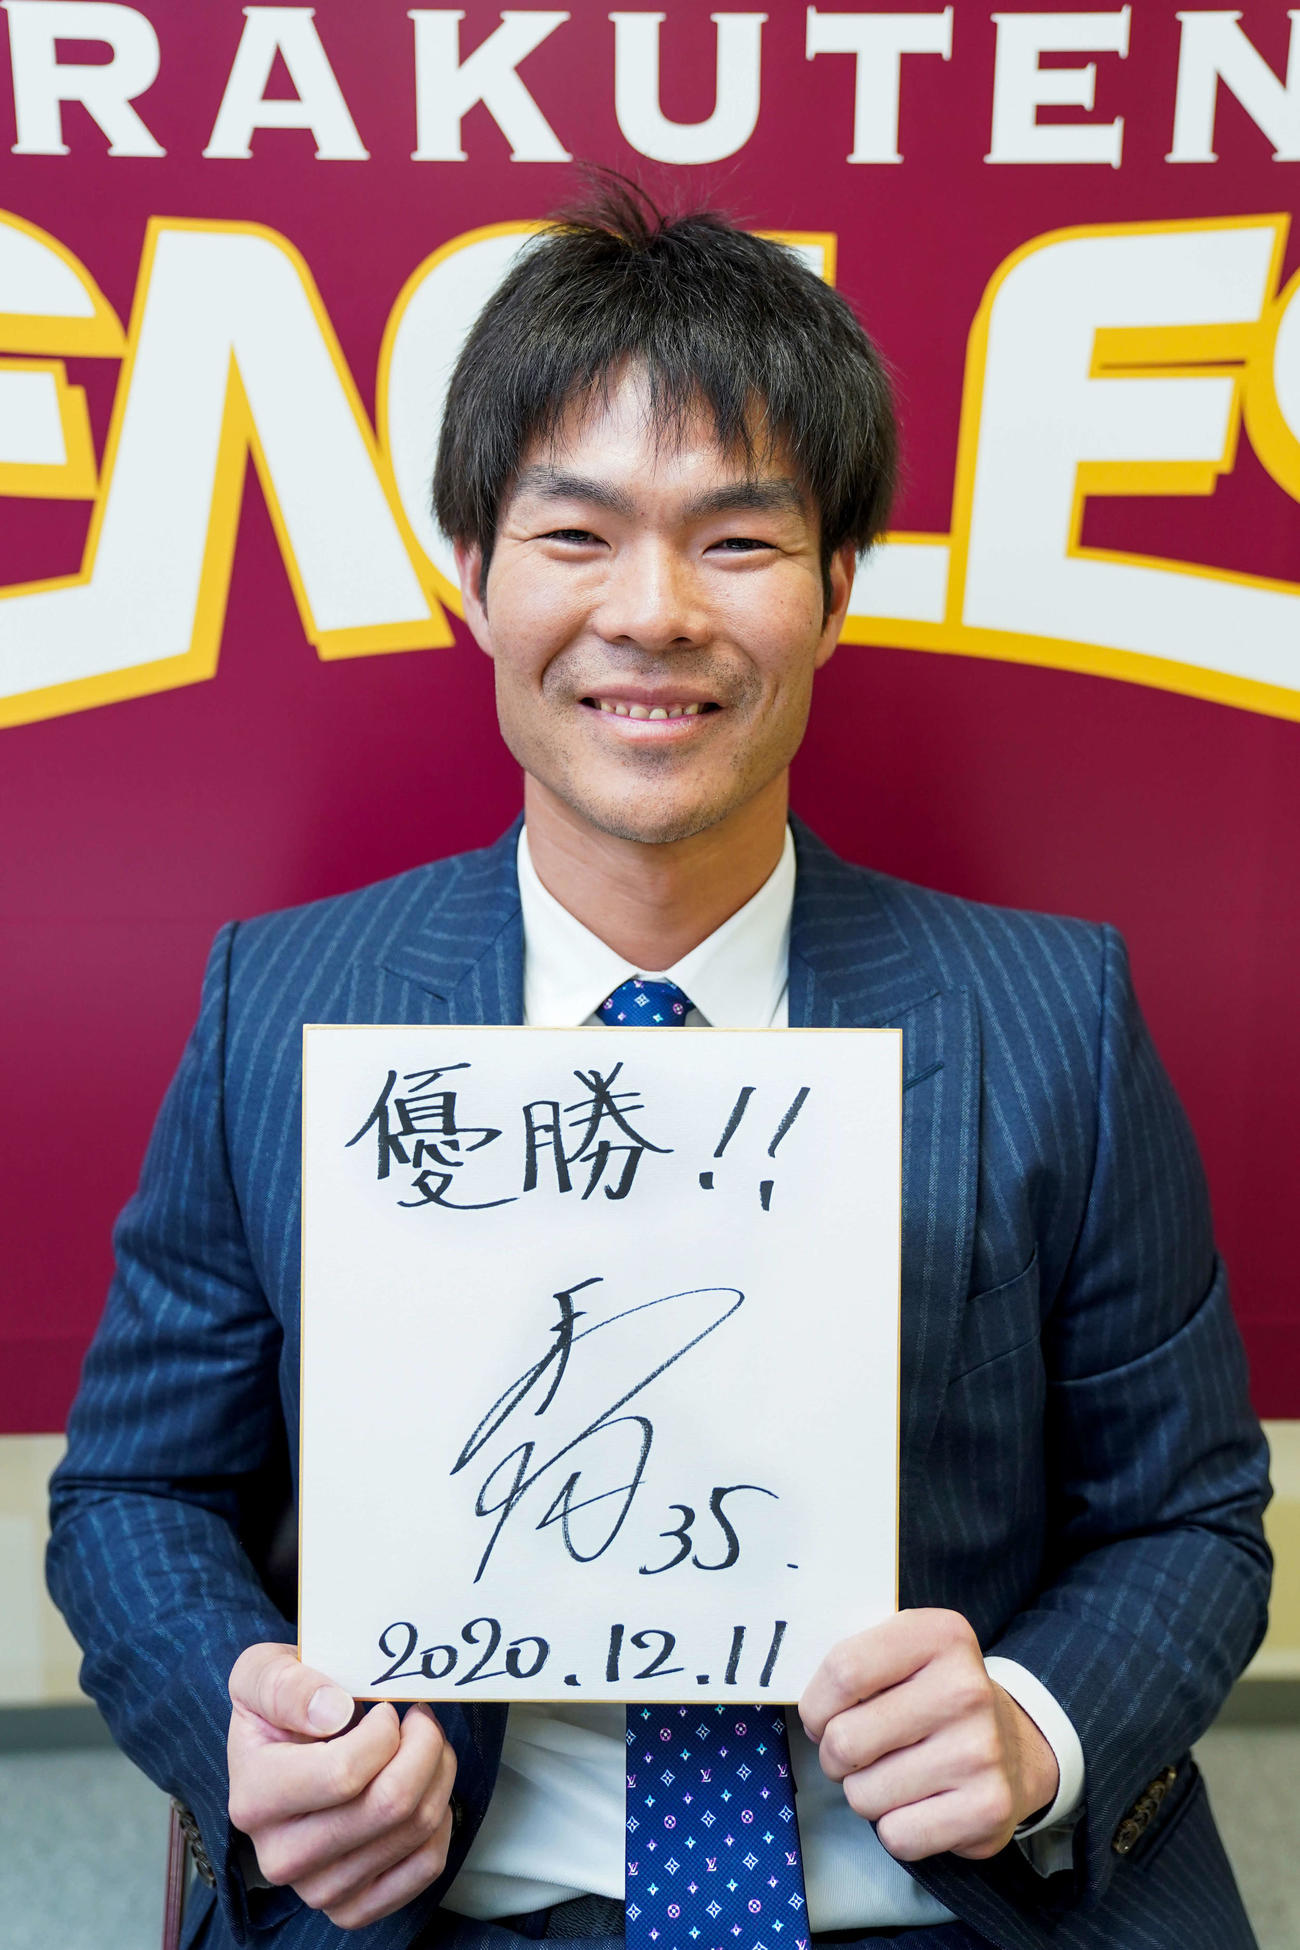 RAKUTEN
EAGLES
優勝!!
35.
2020.12.11